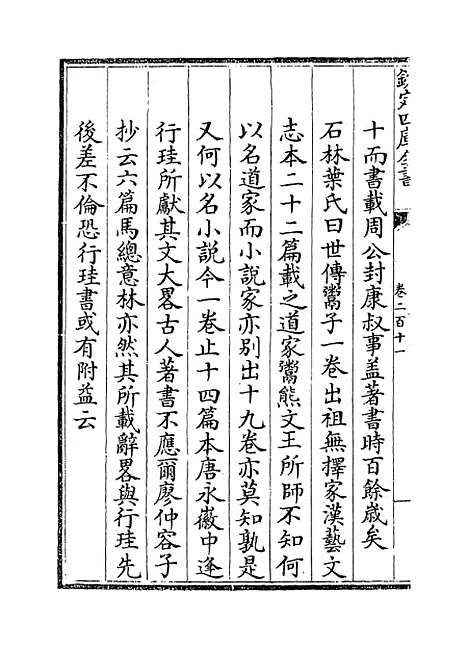 欽定四庫全書
卷二百十一
十而書載周公封康叔事盖著書時百餘歲矣
石林葉氏曰世傳鬻子一卷出祖無擇家漢藝文
志本二十二篇載之道家鬻熊文王所師不知何
以名道家而小說家亦別出十九卷亦莫知孰是
又何以名小說今一卷止十四篇本唐永徽中逢
行珪所獻其文大畧古人著書不應爾廖仲容子
抄云六篇馬總意林亦然其所載辭畧與行珪先
後差不倫恐行珪書或有附益云